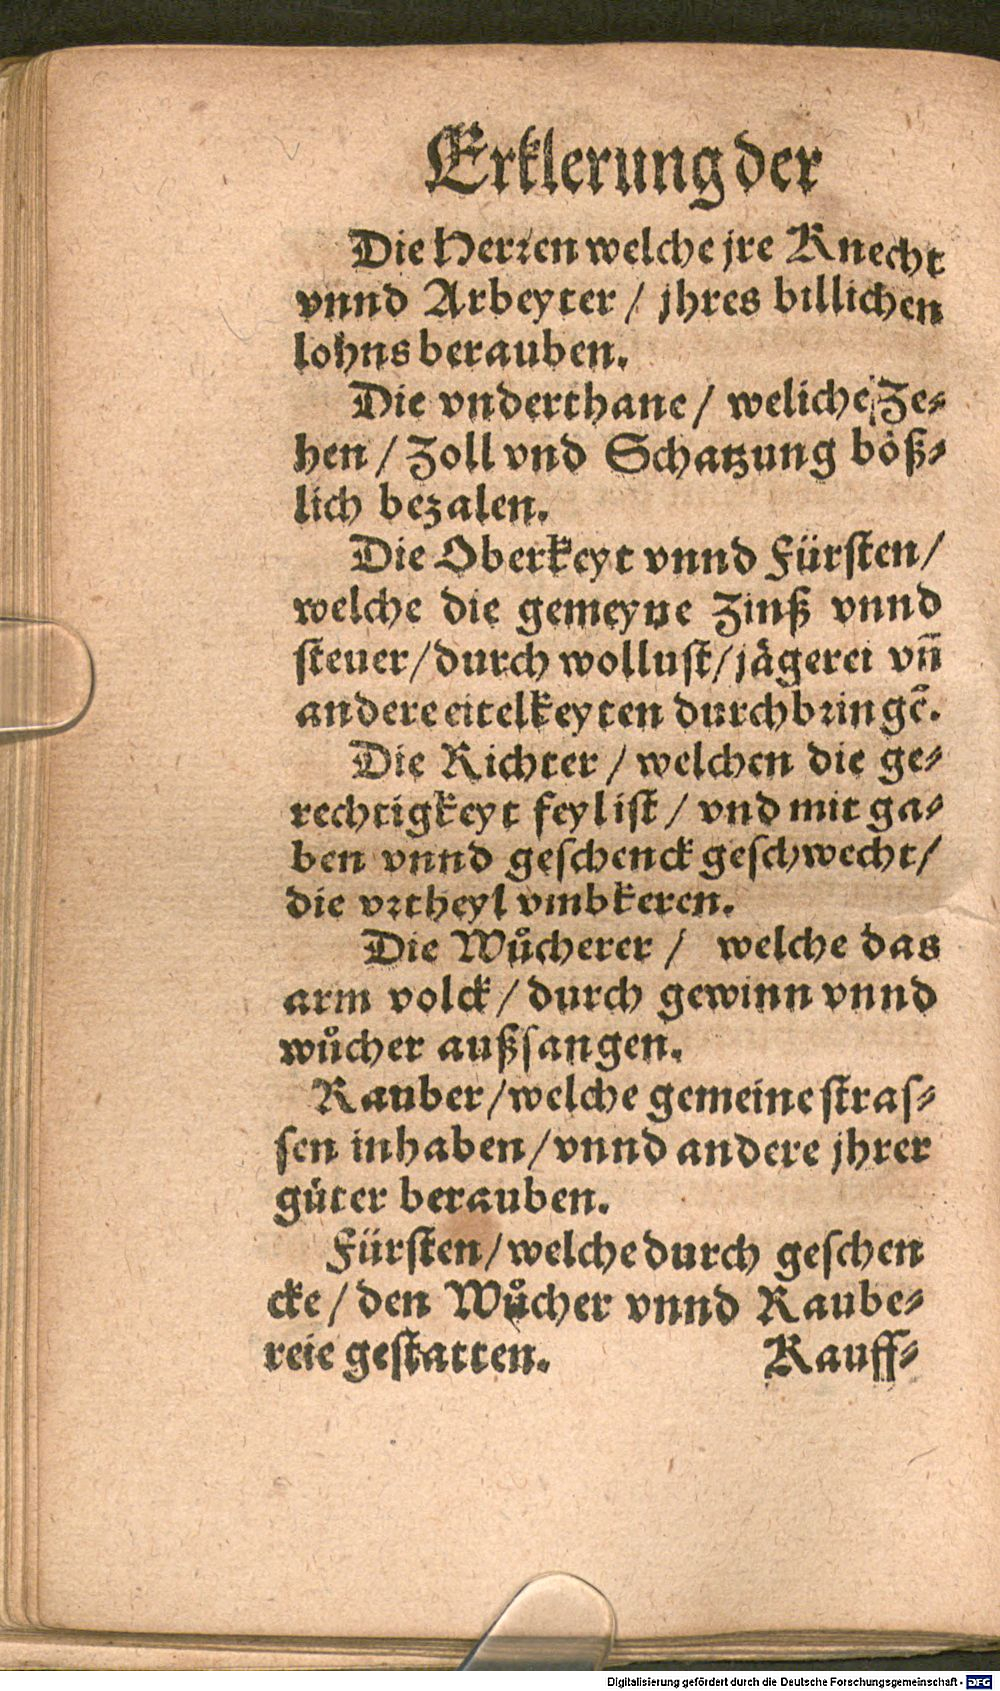 Erklerung der
Die Herren welche jre Knecht
vnnd Arbeyter / jhres billichen
lohns berauben.
Die vnderthane / weliche Ze⸗
hen / Zoll vnd Schatzung böß⸗
lich bezalen.
Die Oberkeyt vnnd Fürsten /
welche die gemeyne Zinß vnnd
steuer / durch wollust / jägerei vñ
andere eitelkeyten durchbringẽ.
Die Richter / welchen die ge⸗
rechtigkeyt feyl ist / vnd mit ga⸗
ben vnnd geschenck geschwecht /
die vrtheyl vmbkeren.
Die Wůcherer / welche das
arm volck / durch gewinn vnnd
wůcher außsangen.
Rauber / welche gemeine stras⸗
sen inhaben / vnnd andere jhrer
güter berauben.
Fürsten / welche durch geschen
cke / den Wůcher vnnd Raube⸗
reie gestatten.
Kauff⸗
Digitalisierung gefördert durch die Deutsche Forschungsgemeinschaft - DFG